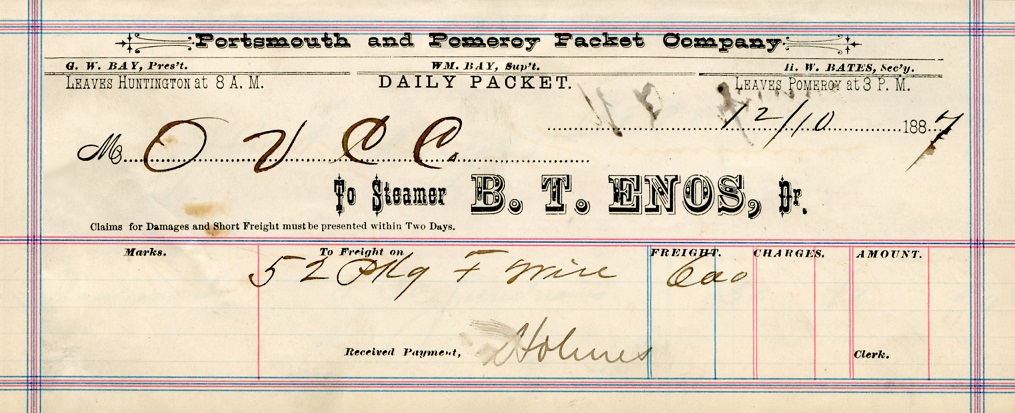 Portsmouth and Pomeroy Packet Company
G. W. BAY, Pres't. WM. BAY, Sup't. H. W. BATES, Sec'y.
LEAVES HUNTINGTON at 8 A. M. DAILY PACKET. LEAVES POMEROY at 3 P. M.
12/10 1887
M O V C C.
To Steamer B. T. ENOS, Dr.
Claims for Damages and Short Freight must be presented within Two Days.
Marks. To Freight on FREIGHT. CHARGES. AMOUNT.
52 Pkg F Wire 600
Received Payment, Holmes Clerk.